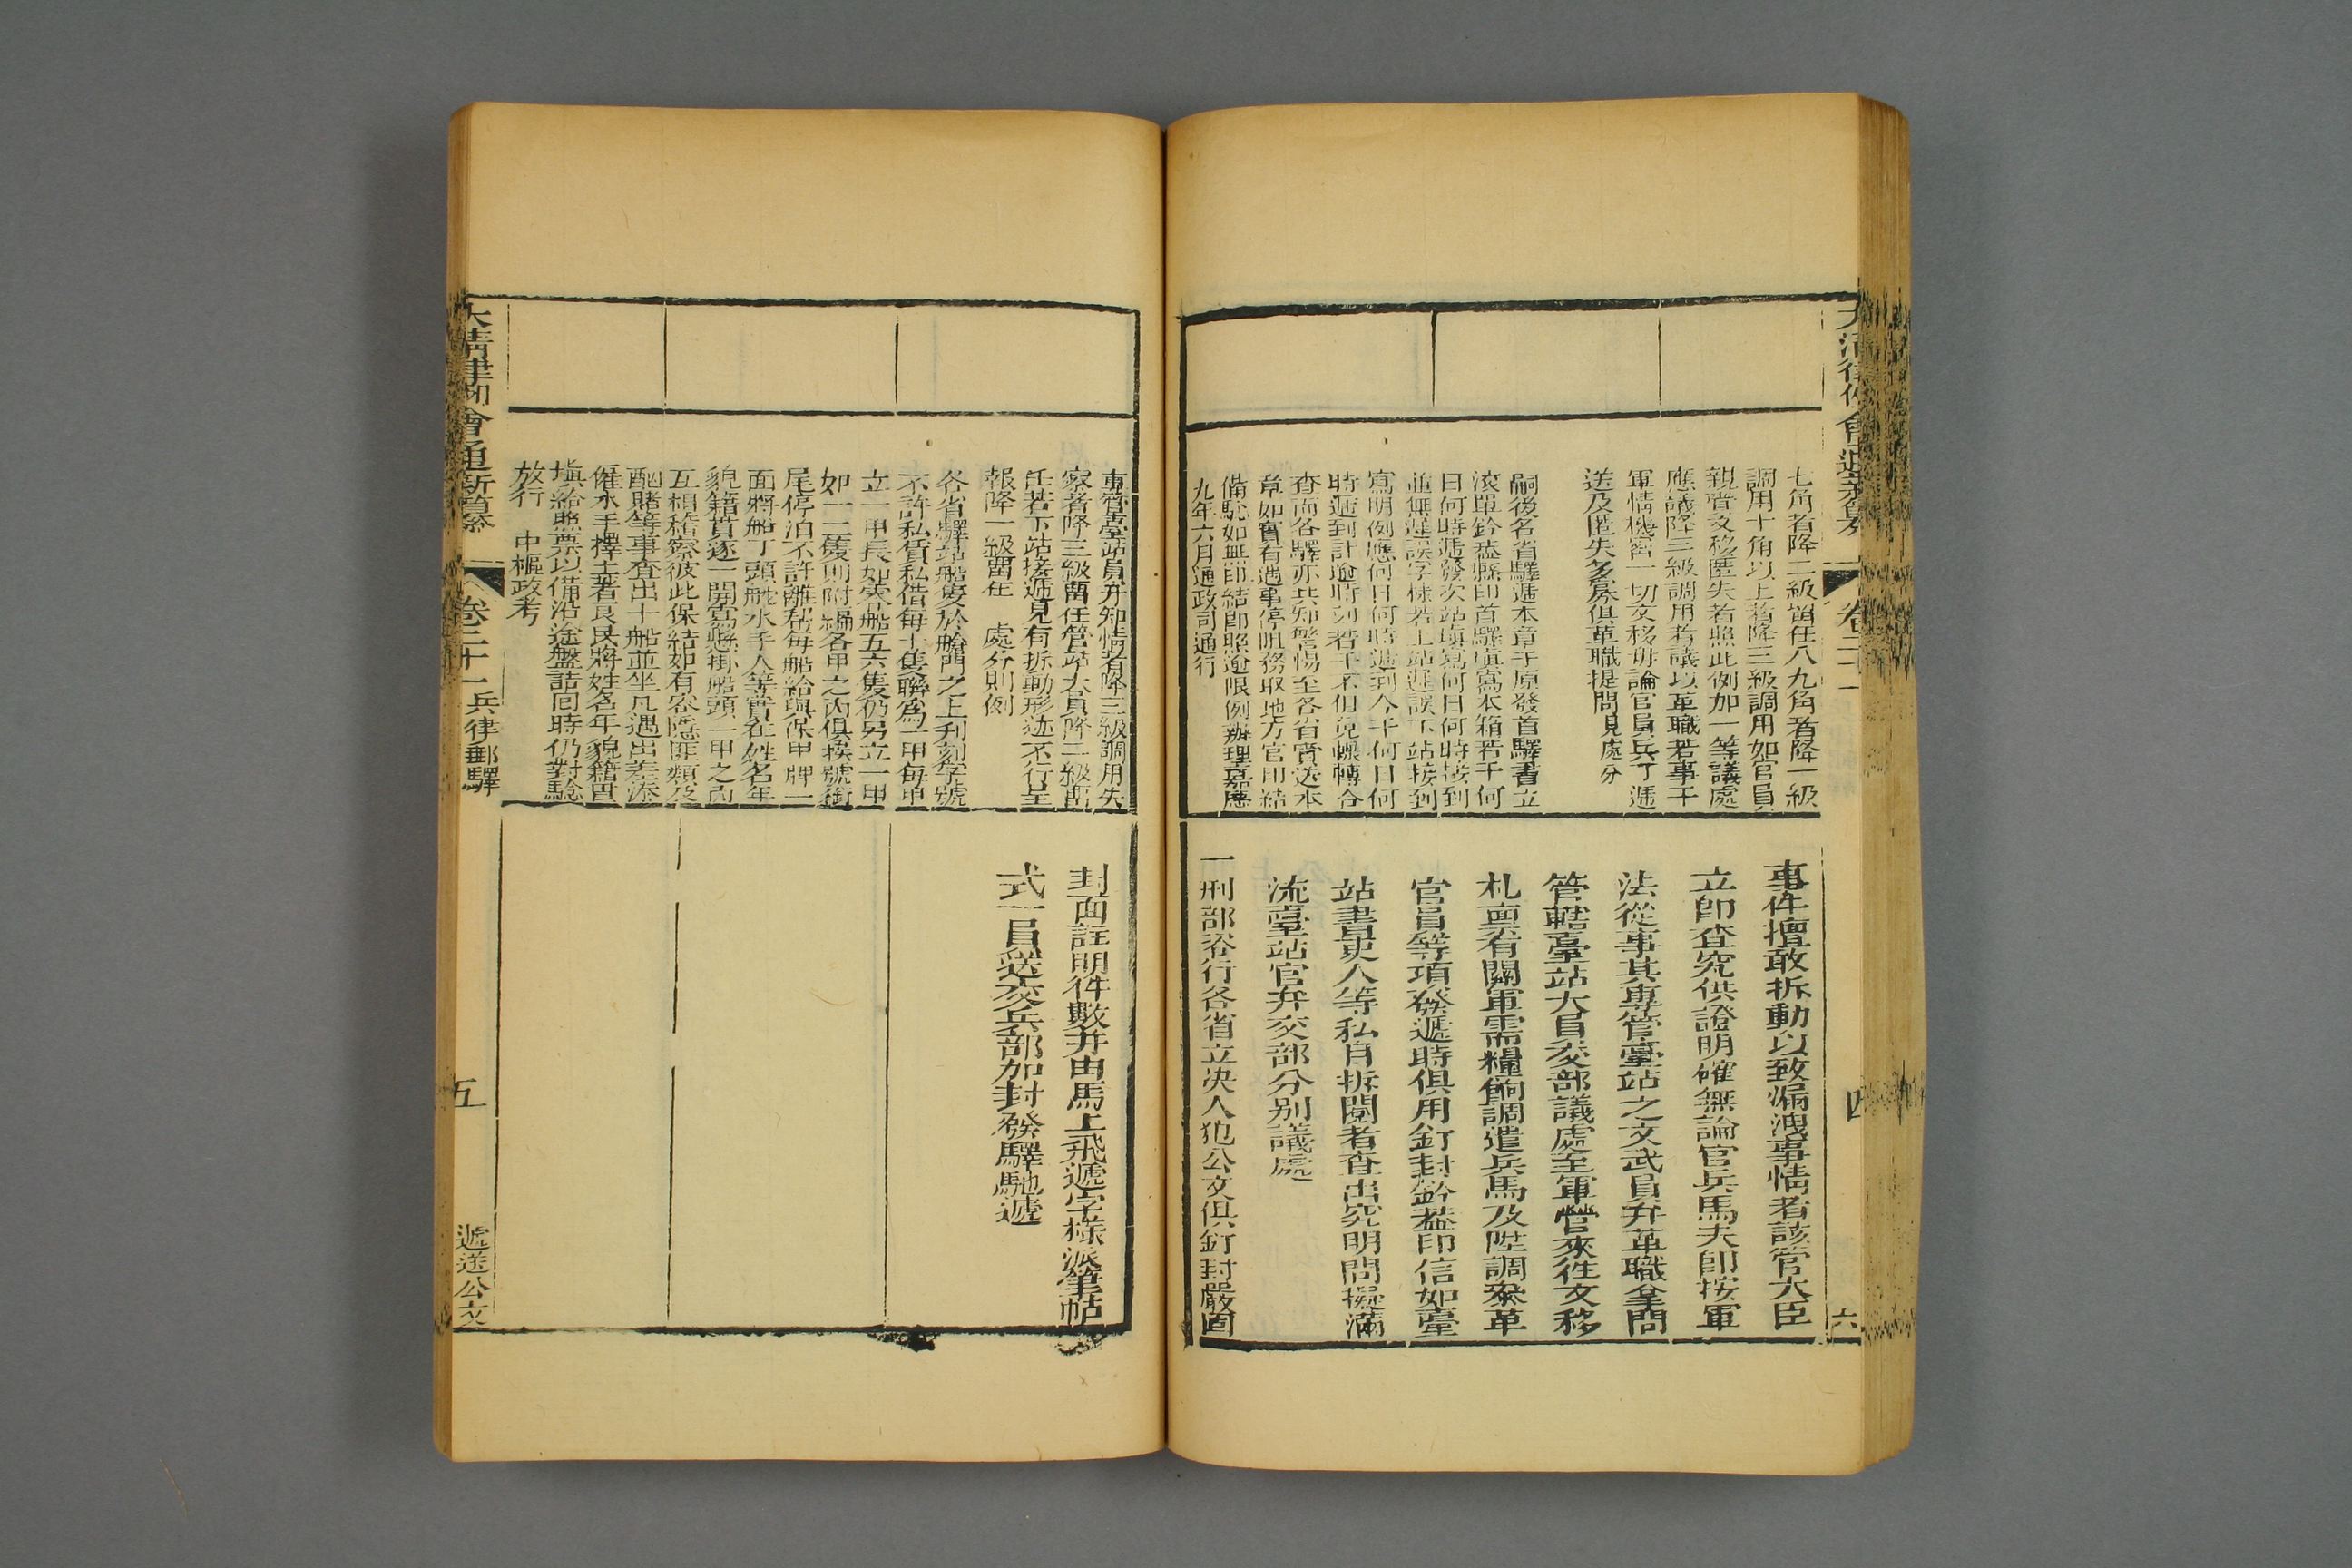 大清律例會通新纂
卷二十一
四
六
七角者降二級留任八九角者降一級
調用十角以上者降三級調用如官員
親賫文移匿失者照此例加一等議處
應議降三級調用者議以革職若事干
軍情機密一切文移毋論官員兵丁遞
送及匿失多寡俱革職提問見處分
嗣後各省驛遞本章于原發首驛書立
滾單鈐蓋縣印首驛塡寫本箱若干何
日何時遞發次站塡寫何日何時接到
並無遲誤字樣若上站遲誤下站接到
寫明例應何日何時遞到今于何日何
時遞到計逾時刻若干不但免輾轉咨
查而各驛亦共知警惕至各省賫送本
章如實有遇事停阻務取地方官印結
備騐如無印結即照逾限例辦理嘉慶
九年六月通政司通行
事件擅敢拆動以致漏洩事情者該管大臣
立卽查究供證明確無論官兵馬夫卽按軍
法從事其專管臺站之文武員弁革職拿問
管轄臺站大員交部議處至軍營來往文移
札稟有關軍需糧餉調遣兵馬及陞調叅革
官員等項發遞時俱用釘封鈐葢印信如臺
站書吏人等私自拆閱者查出究明問擬滿
流臺站官弁交部分别議處
一刑部咨行各省立决人犯公文俱釘封嚴固
專管臺站員弁知情者降三級調用失
察者降三級留任管站大員降二級留
任若下站接遞見有拆動形迹不行呈
報降一級留任　處分則例
各省驛站船隻於艙門之上刋刻字號
不許私賃私借每十隻聯爲一甲每甲
立一甲長如零船五六隻仍另立一甲
如一二隻則附編各甲之內俱挨號銜
尾停泊不許離幫每船給與保甲牌一
面將船丁頭舵水手人等實在姓名年
貌籍貫逐一開寫懸掛船頭一甲之內
互相稽察彼此保結如有容隱匪類及
酗賭等事查出十船並坐凡遇出差添
僱水手擇土著良民將姓名年貌籍貫
塡給照票以備沿途盤詰回時仍對驗
放行　中樞政考
封面註明件數并由馬上飛遞字樣派筆帖
式一員送交兵部加封發驛馳遞
大清律例會通新纂
卷二十一
兵律郵驛
五
遞送公文